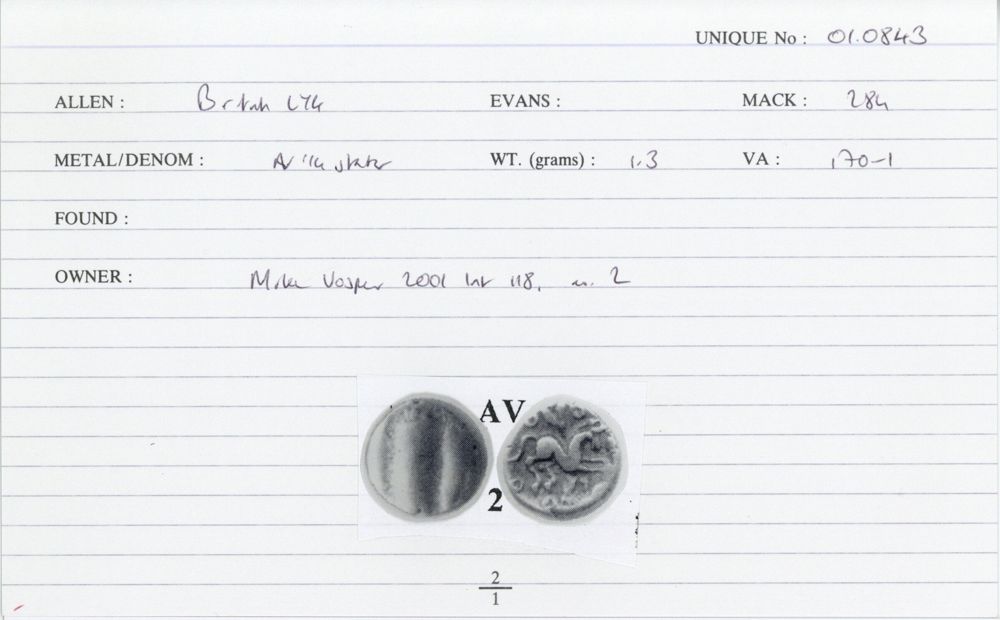 UNIQUE No : 01.0843
ALLEN : British LY4 EVANS : MACK : 284
METAL/DENOM : AV 1/4 stater WT. (grams) : 1.3 VA : 170-1
FOUND :
OWNER : Mike Vosper 2001 list 118, n. 2
AV
2
2
1